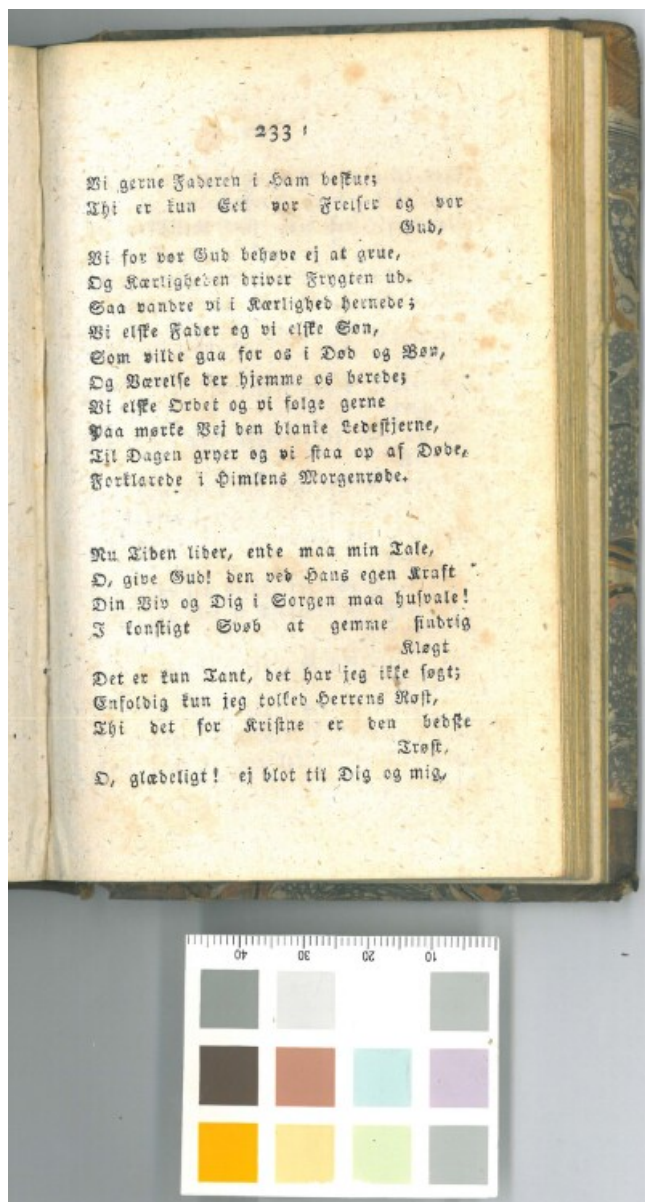 233
Vi gerne Faderen i Ham beskue;
Thi er kun Eet vor Frelser og vor
Gud,
Vi for vor Gud behøve ej at grue,
Og Kærligheden driver Frygten ud.
Saa vandre vi i Kærlighed hernede;
Vi elske Fader og vi elske Søn,
Som vilde gaa for os i Død og Bøn,
Og Værelse der hjemme os berede;
Vi elske Ordet og vi følge gerne
Paa mørke Vej den blanke Ledestjerne,
Til Dagen gryer og vi staa op af Døde,
Forklarede i Himlens Morgenrøde.
Nu Tiden lider, ende maa min Tale,
O, give Gud! den ved Hans egen Kraft
Din Viv og Dig i Sorgen maa husvale!
I konstigt Svøb at gemme sindrig
Kløgt
Det er kun Tant, det har jeg ikke søgt;
Enfoldig kun jeg tolked Herrens Røst,
Thi det for Kristne er den bedste
Trøst,
O, glædeligt! ej blot til Dig og mig,
40 30 20 10